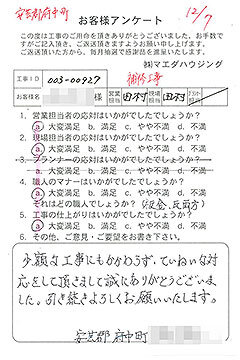 安芸郡府中町
12/7
お客様アンケート
この度は工事のご用命を頂きありがとうございました。お手数で
すがご記入頂き、ご返送頂きますようお願い申し上げます。
ご返送頂いた方から、毎月抽選で感謝品を進呈いたします。
㈱マエダハウジング
工事ID 003-00927 補修工事
お客様名 様 営業担当 田村 現場担当 田村
1. 営業担当者の対応はいかがでしたでしょうか?
a. 大変満足 b. 満足 c. やや不満 d. 不満
2. 現場担当者の対応はいかがでしたでしょうか?
a. 大変満足 b. 満足 c. やや不満 d. 不満
3. プランナーの対応はいかがでしたでしょうか?
a. 大変満足 b. 満足 c. やや不満 d. 不満
4. 職人のマナーはいかがでしたでしょうか?
a. 大変満足 b. 満足 c. やや不満 d. 不満
それはどの職人でしょうか?(板金、瓦両方)
5. 工事の仕上がりはいかがでしたでしょうか?
a. 大変満足 b. 満足 c. やや不満 d. 不満
6. その他、ご意見・ご要望をお書き下さい。
少額な工事にもかかわらず、ていねいな対
応をして頂きまして誠にありがとうございま
した。引き続きよろしくお願いいたします。
安芸郡 府中町